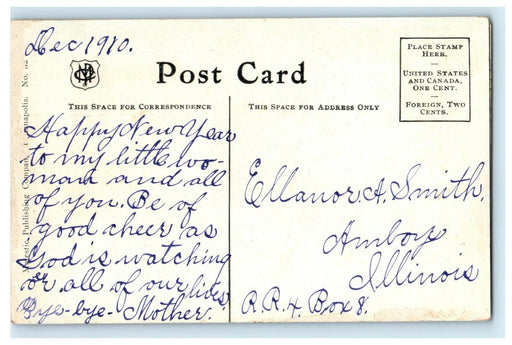 Dec 1910.
Post Card
PLACE STAMP
HERE.
UNITED STATES
AND CANADA,
ONE CENT.
FOREIGN, TWO
CENTS.
THIS SPACE FOR CORRESPONDENCE
THIS SPACE FOR ADDRESS ONLY
Happy New Year
to my little wo-
man and all
of you. Be of
good cheer as
God is watching
over all of our lives.
Bye-bye- Mother.
Ellanor A. Smith.
Amboy
Illinois
R.R. 4. Box 8.
Publishing